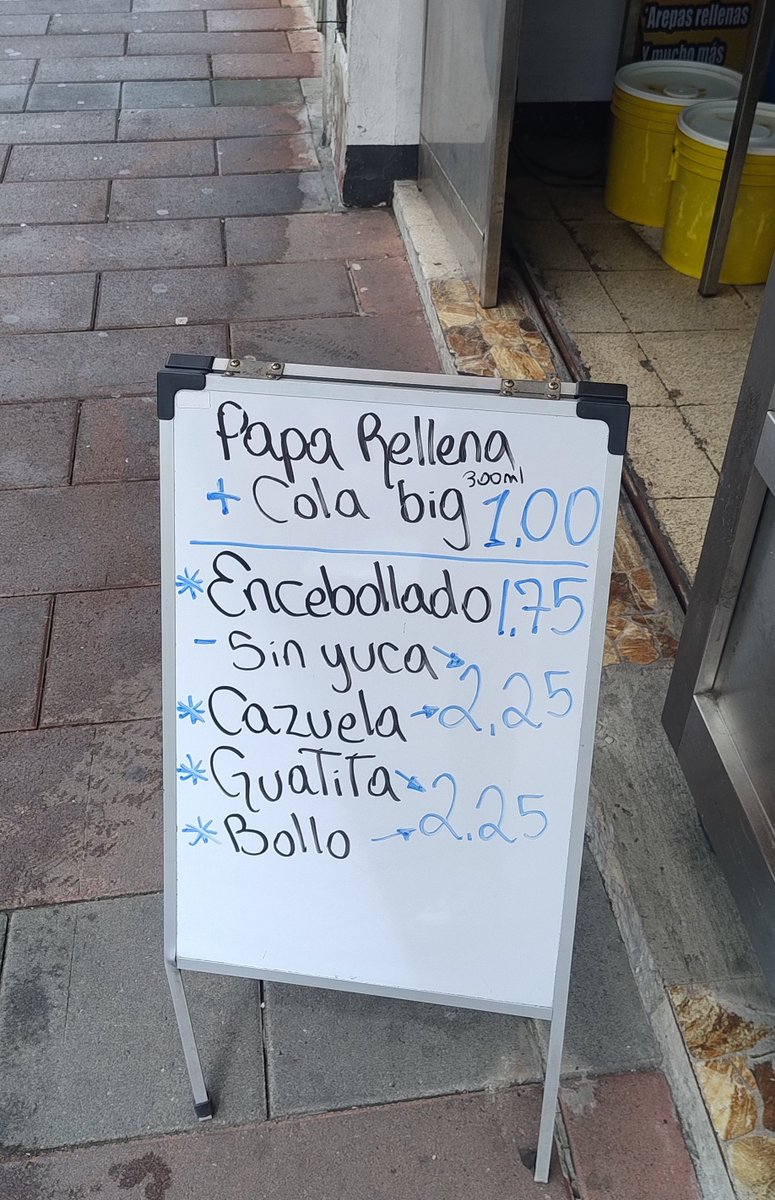 Arepas rellenas
Y mucho más
Papa Rellena
+ Cola big 300ml 1,00
* Encebollado 1,75
- Sin yuca → 2,25
* Cazuela →
* Guatita → 2,25
* Bollo →